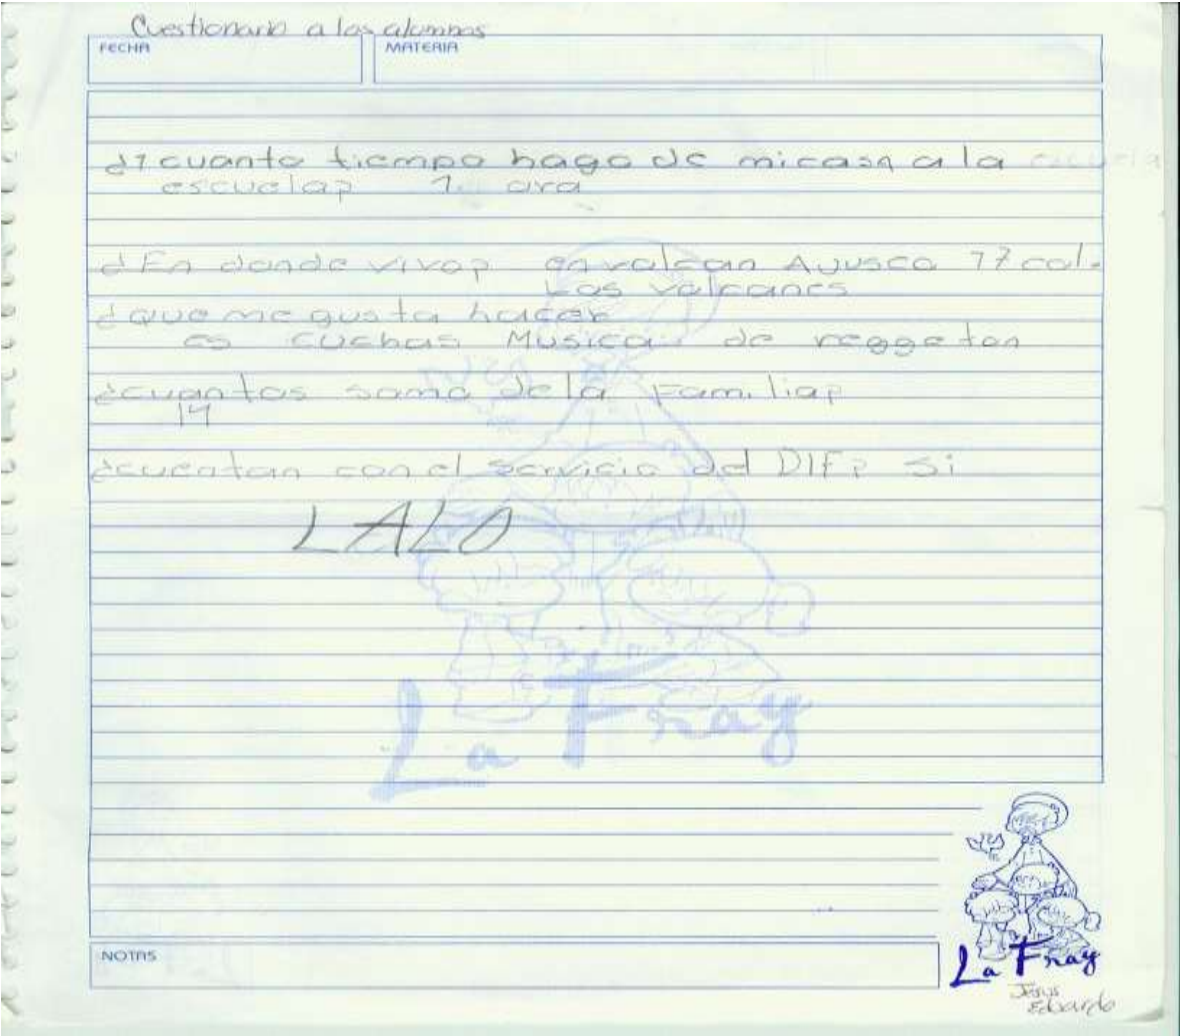 Cuestionario a los alumnos
FECHA MATERIA
¿1 cuanto tiempo hago de micasa a la escuela
escuela? 1. ora
¿En donde vivo? en volcan Ajusco 77 col.
Los volcanes
¿que me gusta hacer
es cuchas Musica de reggeton
¿cuantos somo dela Familia?
14
¿cuentan con el servicio del DIF? si
LALO
La Fray
NOTAS
La Fray
Jesus
Eduardo